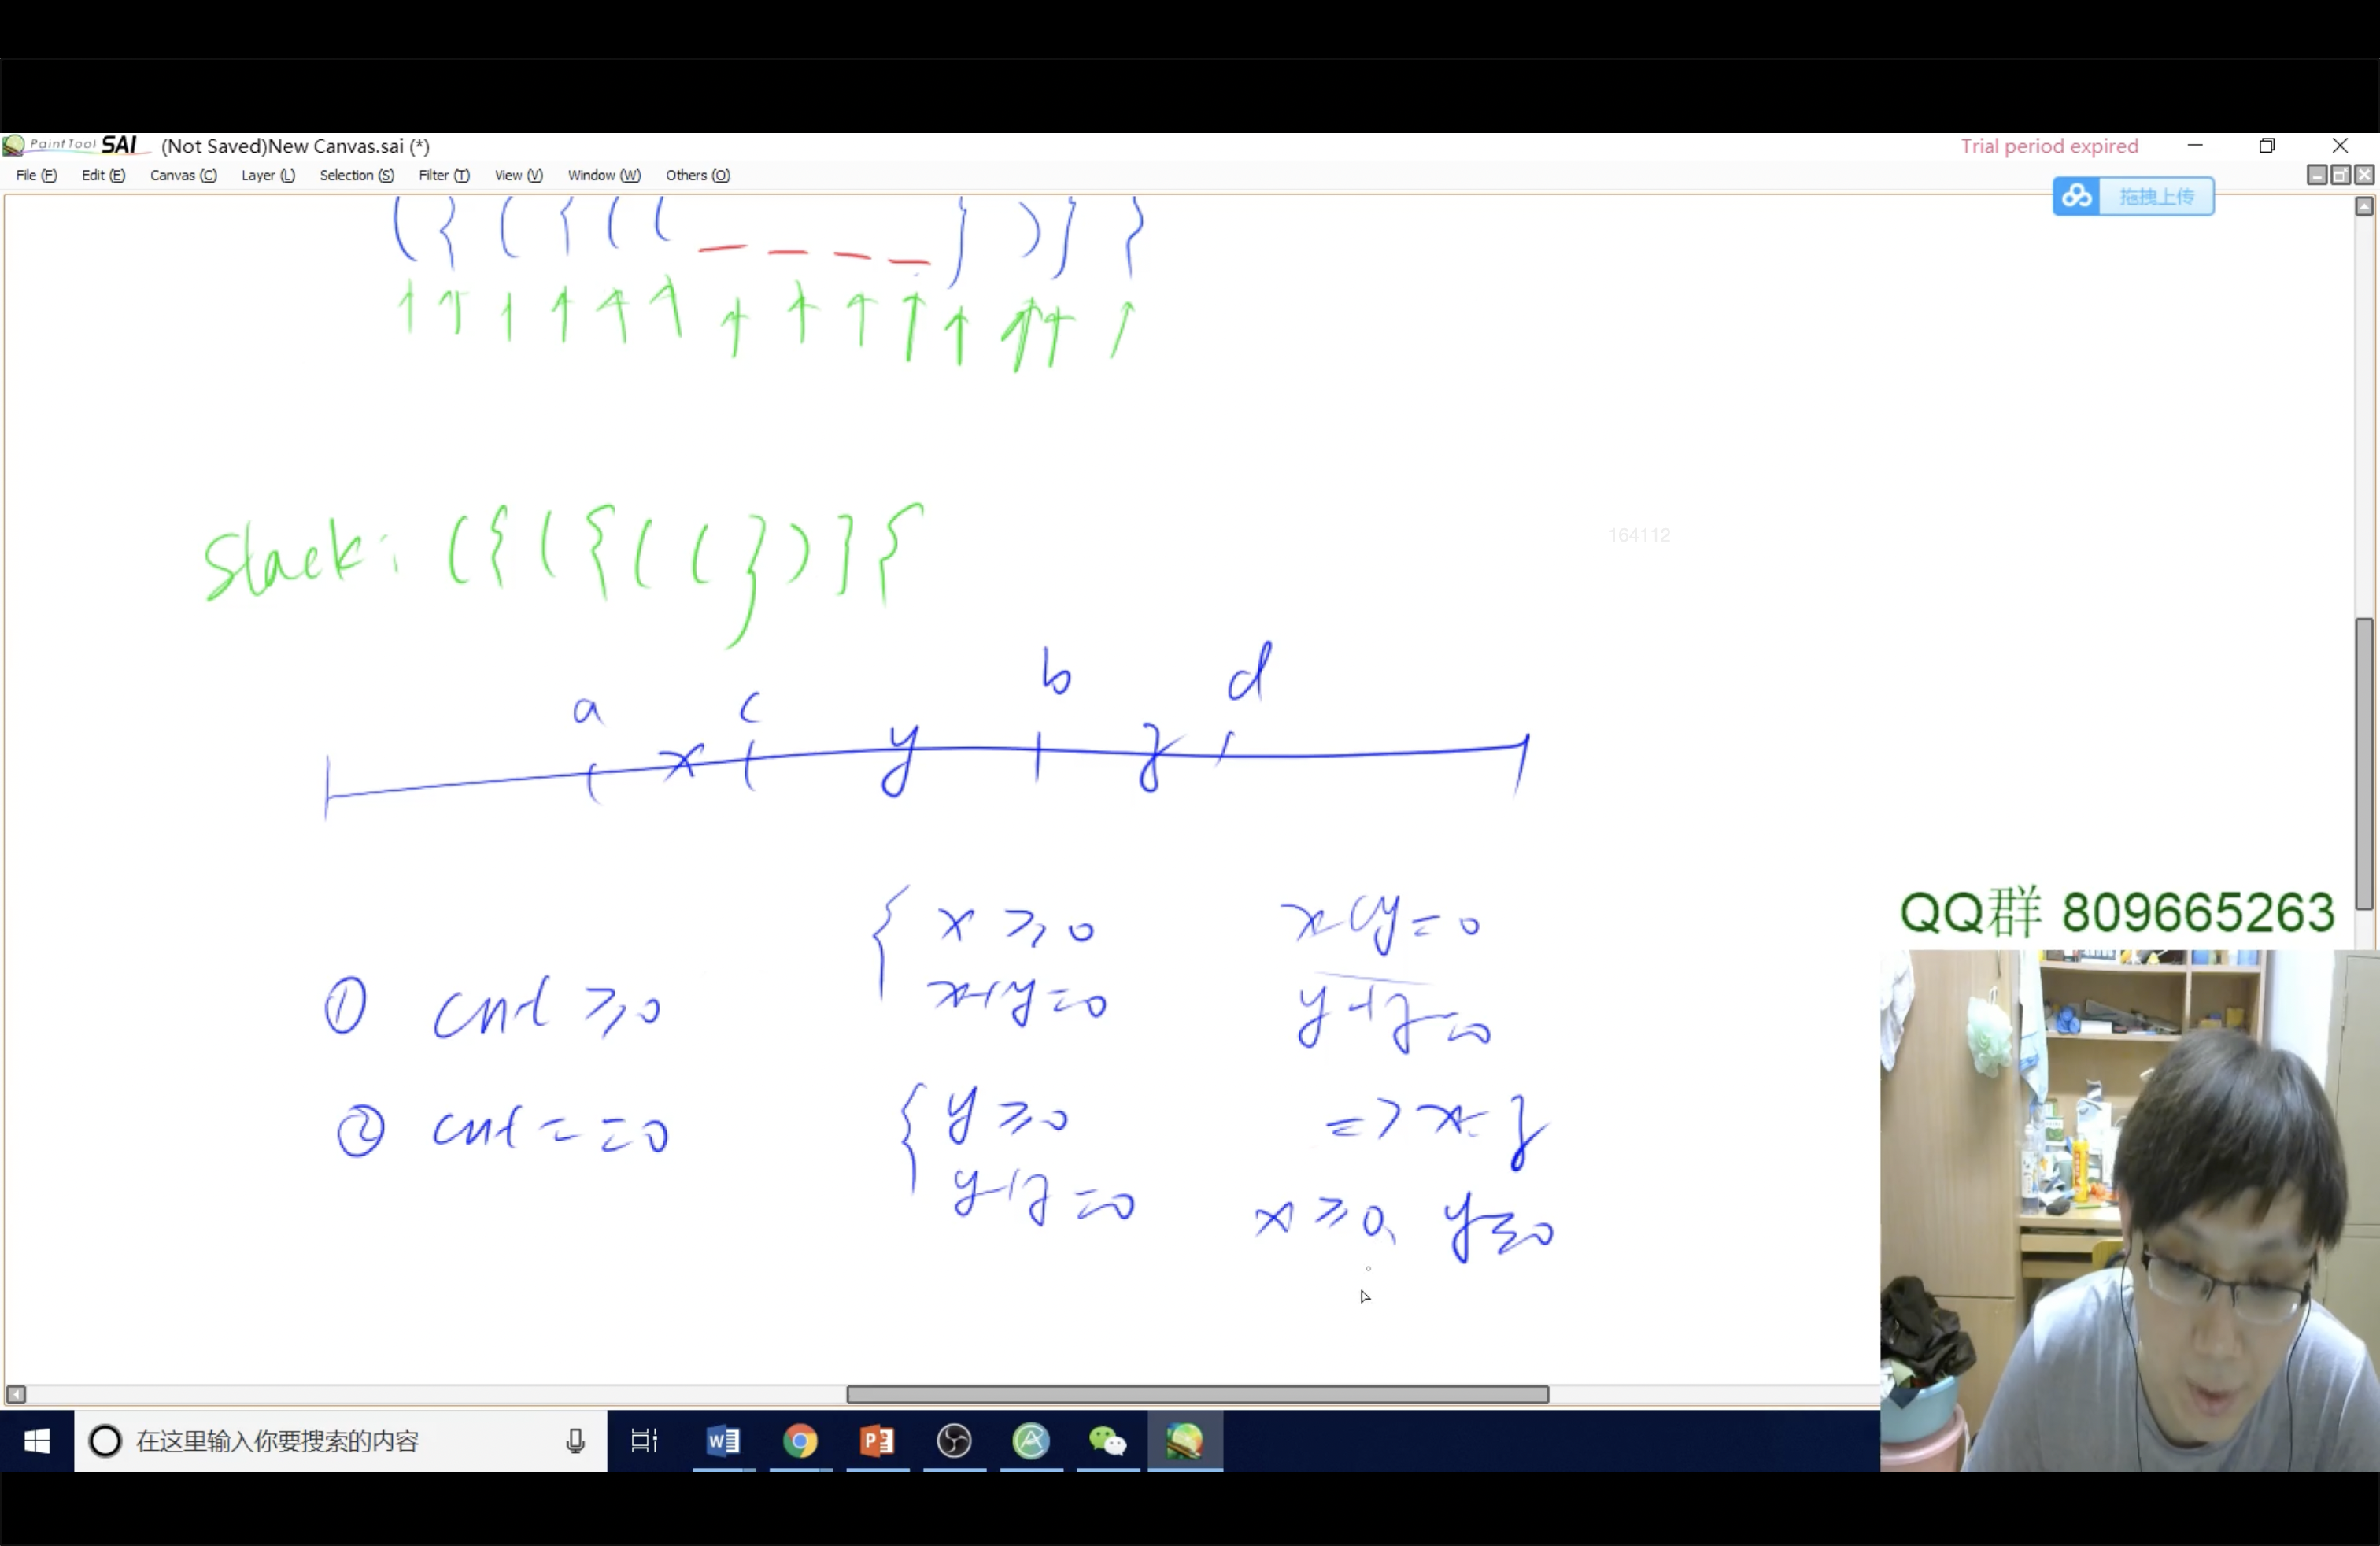 PaintTool SAI (Not Saved)New Canvas.sai (*) Trial period expired
File (F) Edit (E) Canvas (C) Layer (L) Selection (S) Filter (T) View (V) Window (W) Others (O)
拖拽上传
( { ( { ( ( _ _ _ _ } ) } }
164112
Stack: ( { ( { ( ( } ) } {
a c b d
x y z
QQ群 809665263
① cnt ≥ 0
② cnt == 0
x ≥ 0
x+y=0
y ≥ 0
y+z=0
x+y=0
y+z=0
=> x=z
x ≥ 0, y≥0
在这里输入你要搜索的内容